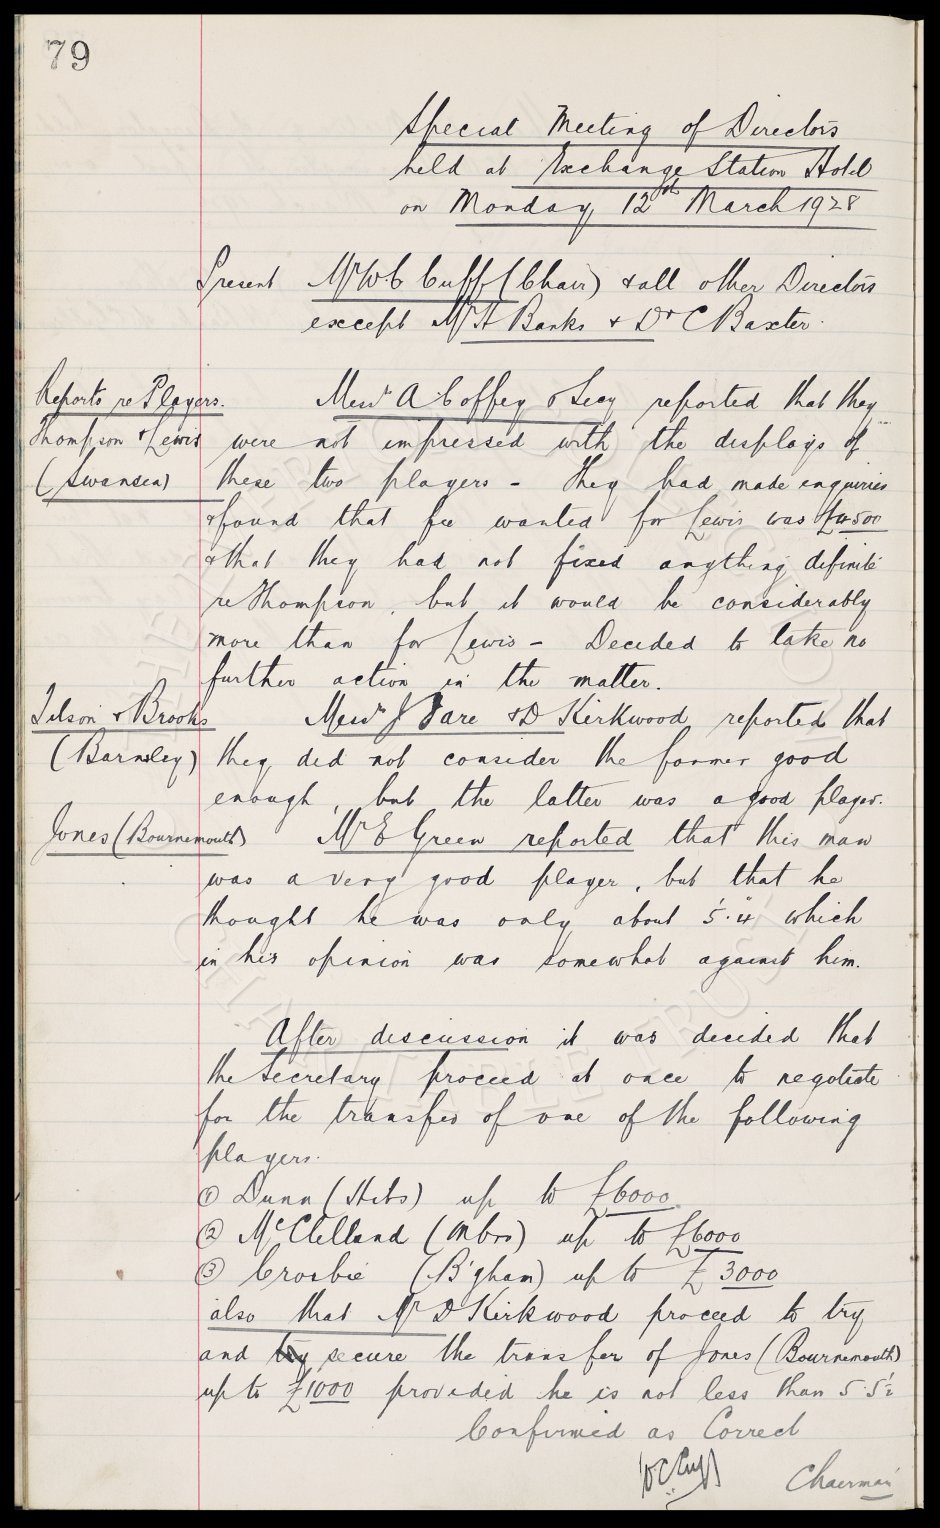 79
Special Meeting of Directors
held at Exchange Station Hotel
on Monday, 12th March 1928
Present Mr W.C Cuff (Chair) & all other Directors
except Mr A Banks & Dr C Baxter.
Reports re Players.
Thompson & Lewis
(Swansea)
Messrs A Coffey & Leay reported that they
were not impressed with the displays of
these two players - They had made enquiries
& found that fee wanted for Lewis was £4500
& that they had not fixed anything definite
re Thompson, but it would be considerably
more than for Lewis - Decided to take no
further action in the matter.
Tilson & Brooks
(Barnsley)
Messrs J Fare & D Kirkwood reported that
they did not consider the former good
enough, but the latter was a good player.
Jones (Bournemouth)
Mr E Green reported that this man
was a very good player, but that he
thought he was only about 5'.4" which
in his opinion was somewhat against him.
After discussion it was decided that
the Secretary proceed at once to negotiate
for the transfer of one of the following
players.
① Dunn (Hibs) up to £6000
② McClelland (Mbro) up to £6000
③ Crosbie (B'gham) up to £3000
also that Mr D Kirkwood proceed to try
and try secure the transfer of Jones (Bournemouth)
up to £1000 provided he is not less than 5.5½
Confirmed as Correct
W C Cuff
Chairman
THE EVERTON COLLECTION
CHARITABLE TRUST